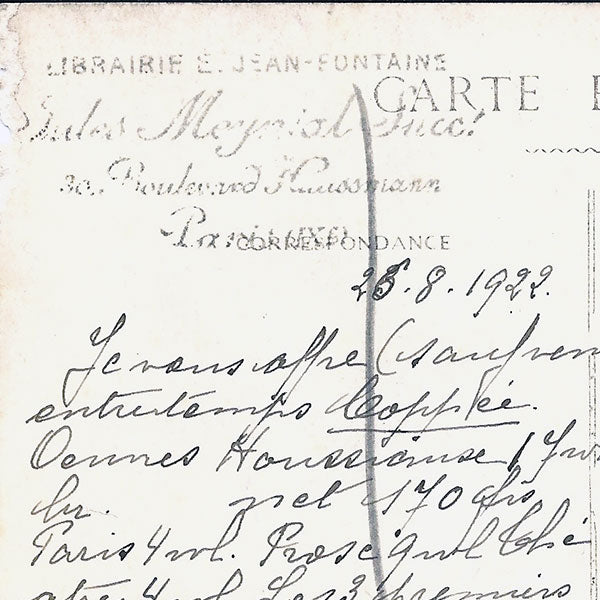 LIBRAIRIE E. JEAN-FONTAINE
CARTE
Jules Meynial Succ.
30, Boulevard Haussmann
Paris (IXe)
CORRESPONDANCE
8.1922.
Je vous offre (sauf ven
entretemps Coppée.
br. net 170 frs
Paris 4 vol. Prose 9 vol Thé
atre 4 vol Les 3 premiers